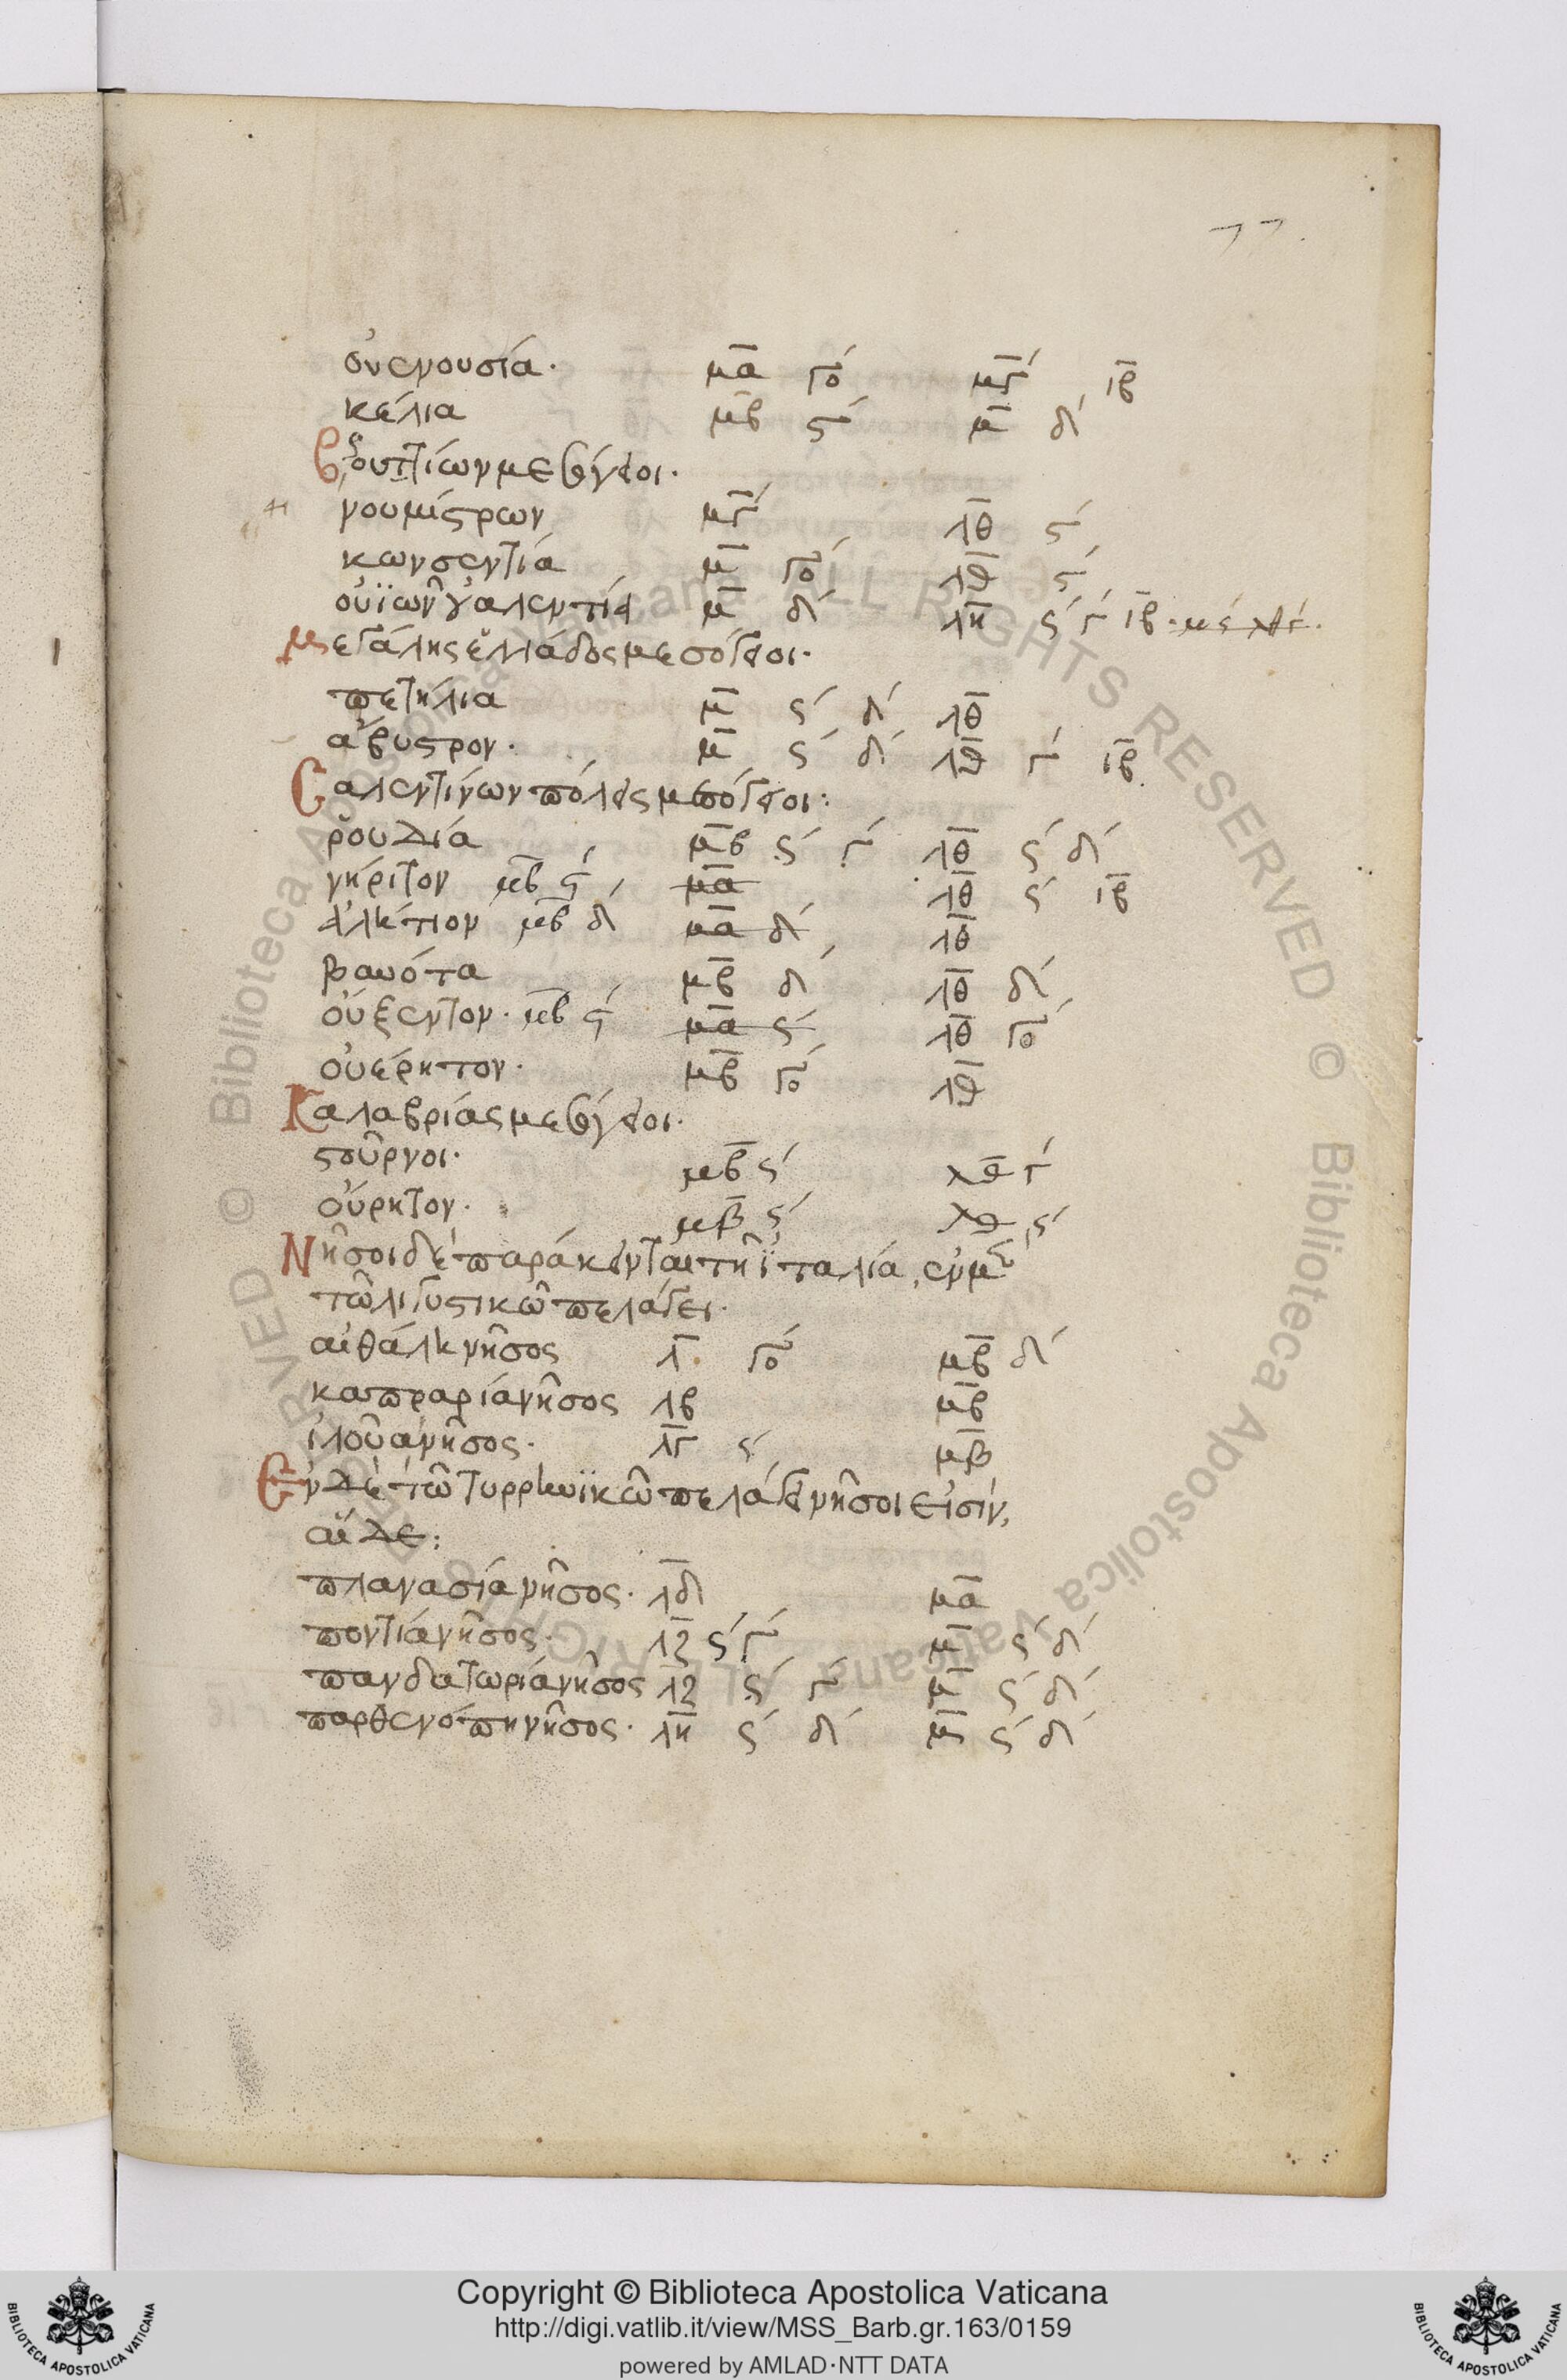 77.
οὐενουσία. μα γο μγ ιβ
κέλια μβ ς μ δ
Βρουττίων μεσόγειοι.
νουμίστρων μγ λθ ς
κωνσεντία μ γο λθ ς
οὐϊβὼν οὐαλεντία μ δ λη ς γ ιβ.
Μεγάλης ἑλλάδος μεσόγειοι.
πετήλια μ ς δ λθ
ἄβυστρον. μ ς δ λθ γ ιβ
Σαλεντίνων πόλεις μεσόγειοι:
ῥουδία μβ ς γ λθ ς δ
νήριτον μβ ς μα λθ ς ιβ
ἀλήτιον μβ δ μα δ λθ
βαυότα μβ δ λθ δ
οὔξεντον. μβ ς μα ς λθ γο
οὐέρητον. μβ γο λθ
Καλαβρίας μεσόγειοι.
στοῦρνοι. μβ ς λθ γ
οὔρητον. μβ ς λθ ς
Νῆσοι δὲ παράκεινται τῆ ἰταλία, ἐν μὲν
τῶ λιγυστικῶ πελάγει.
αἰθάλη νῆσος λ γο μβ δ
καπραρία νῆσος λβ μβ
ἰλούα νῆσος. λγ ς μβ
Ἐν δὲ τῶ τυρρηνϊκῶ πελάγει νῆσοι εἰσίν,
αἵδε:
πλανασία νῆσος. λδ μα
ποντία νῆσος. λζ ς γ μ ς δ
πανδατωρία νῆσος λζ ς γ μ ς δ
παρθενόπη νῆσος. λη ς δ μ ς δ
Copyright © Biblioteca Apostolica Vaticana
http://digi.vatlib.it/view/MSS_Barb.gr.163/0159
powered by AMLAD·NTT DATA
BIBLIOTECA APOSTOLICA VATICANA
BIBLIOTECA APOSTOLICA VATICANA